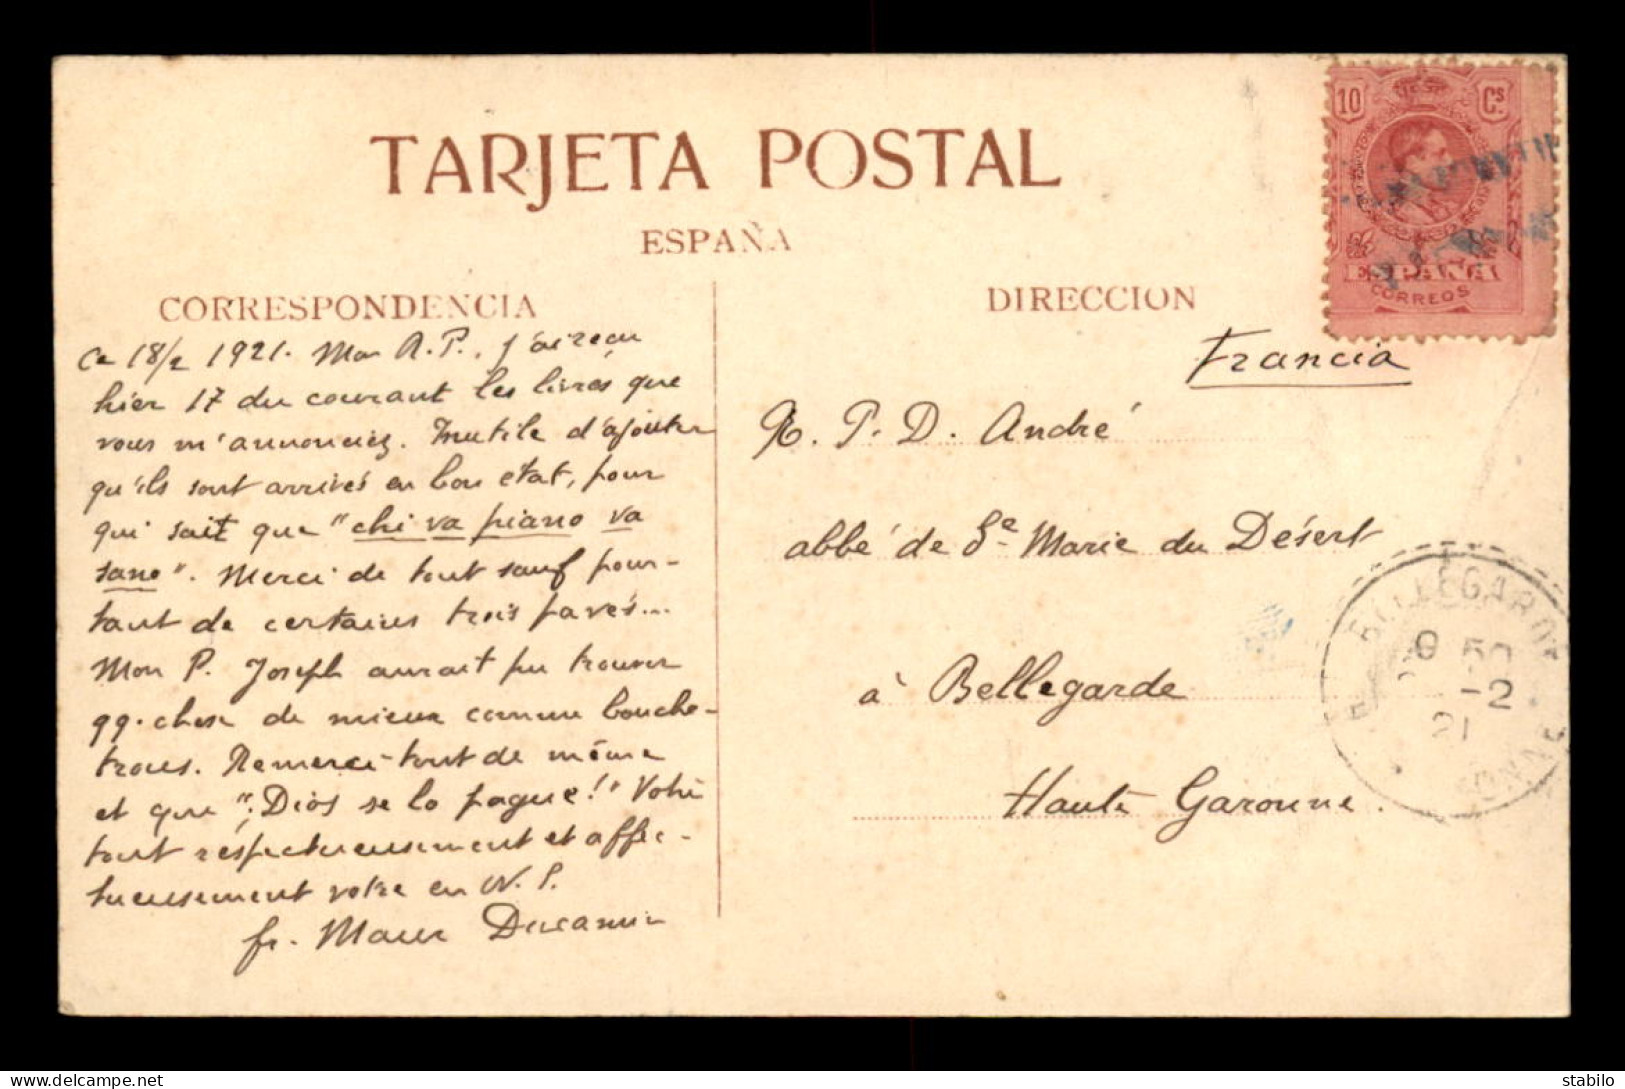 TARJETA POSTAL
ESPAÑA
CORRESPONDENCIA
ce 18/2 1921. Mon R. P., J'ai reçu
hier 17 du courant les livres que
vous m'annonciez. Inutile d'ajouter
qu'ils sont arrivés en bon état, pour
qui sait que "chi va piano va
sano". Merci de tout sauf pour-
tant de certains trois pavés...
Mon P. Joseph aurait pu trouver
qq. chose de mieux comme bouche-
trous. Remerci-tout de même
et que "¡Dios se lo pague!" Votre
tout respectueusement et affec-
tueusement votre en N. S.
fr. Maur
DIRECCION
Francia
R. P. D. André
abbé de Ste Marie du Désert
à Bellegarde
Haute Garonne.
10 Cs
ESPAÑA
CORREOS
BELLEGARDE
-2
21
stabilo